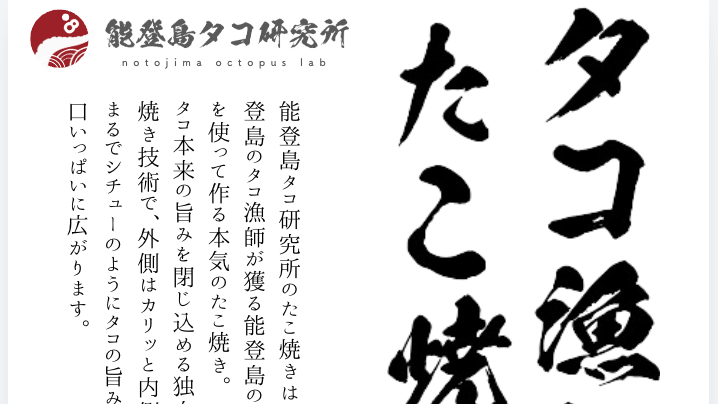 能登島タコ研究所
notojima octopus lab
タコ漁
たこ焼
能登島タコ研究所のたこ焼きは
登島のタコ漁師が獲る能登島の
を使って作る本気のたこ焼き。
タコ本来の旨みを閉じ込める独
焼き技術で、外側はカリッと内
まるでシチューのようにタコの旨み
口いっぱいに広がります。